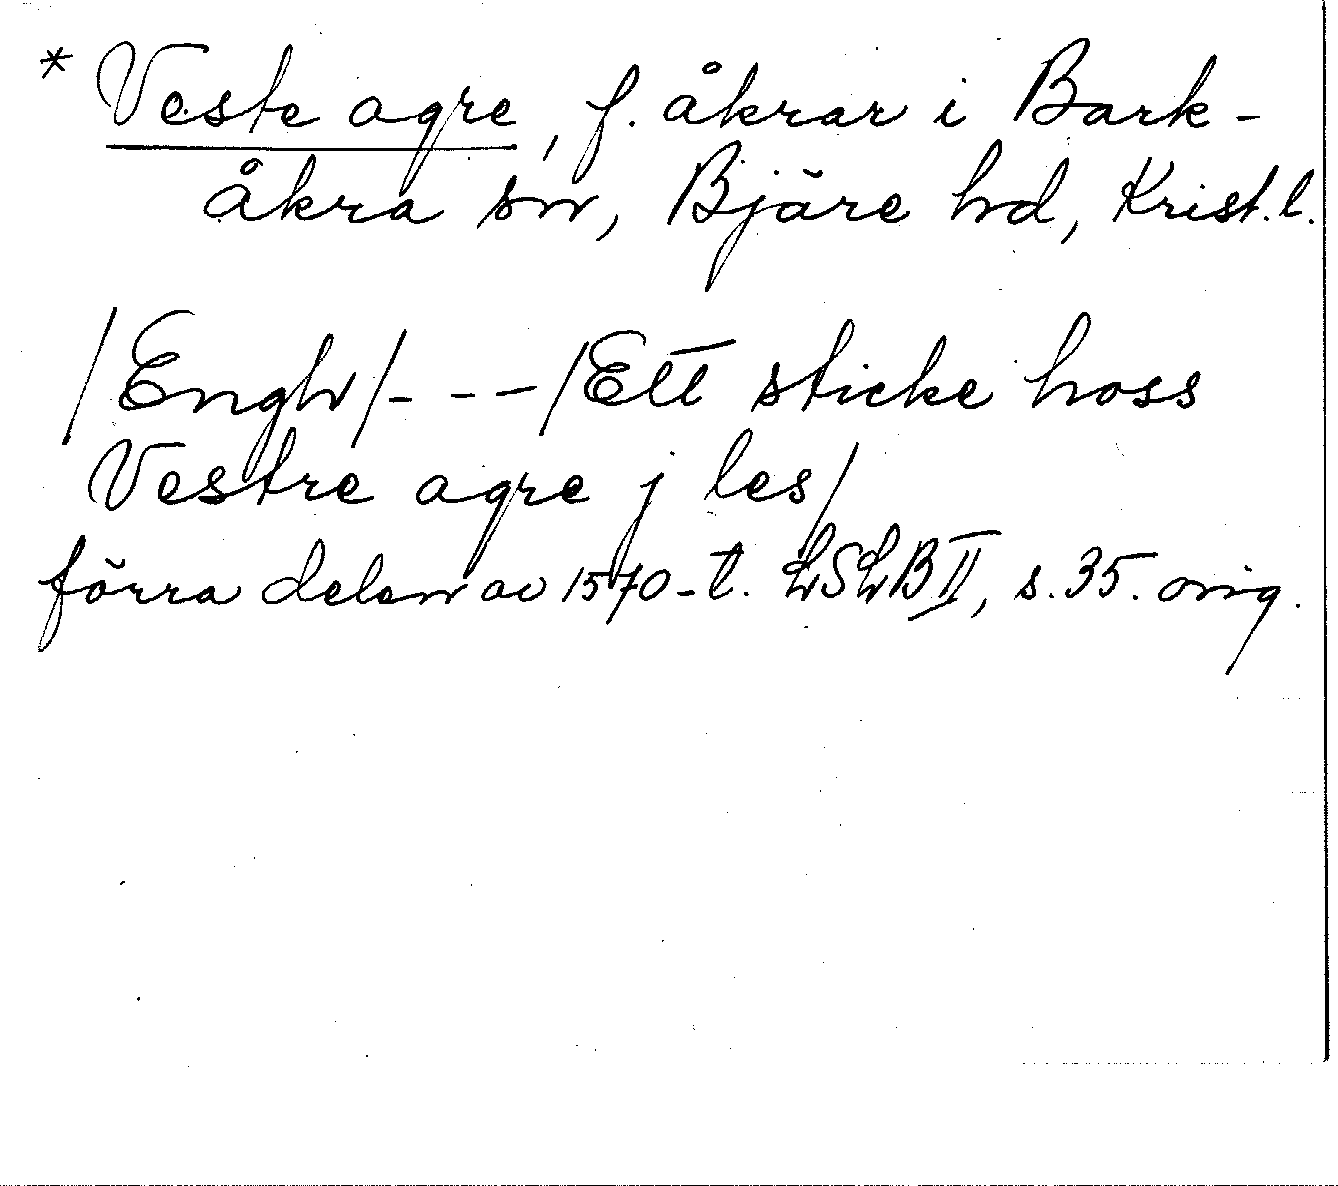 * Veste agre, f. åkrar i Bark-
åkra sn, Bjäre hd, Krist. l.
/Engh/- - -/Ett sticke hoss
Vestre agre j les/
förra delen av 1570-t. LSLB II, s. 35. orig.